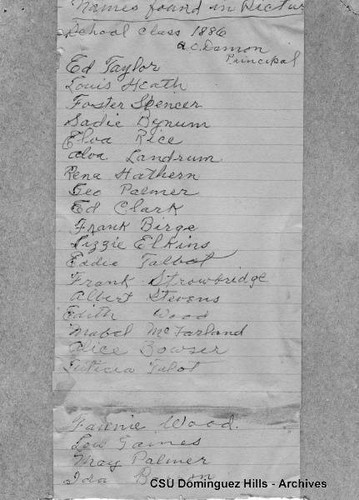 Names found in Pictur
School class 1886
A.C. Damon
Principal
Ed Taylor
Louis Heath
Foster Spencer
Sadie Bynum
Elva Rice
Alva Landrum
Rena Hathern
Geo Palmer
Ed Clark
Frank Birge
Lizzie Elkins
Eddie Talbot
Frank Strowbridge
Albert Stevens
Edith Wood
Mabel McFarland
Alice Bowser
Talot
Fannie Wood.
Lew James
May Palmer
Ida
CSU Dominguez Hills - Archives